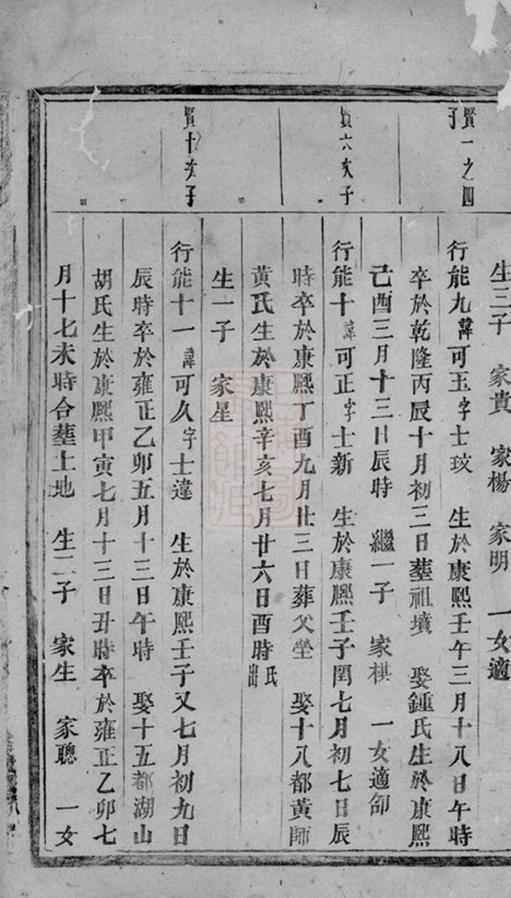 生三子 家貴 家楊 家明 一女適
賢一之四子
行能九諱可玉字士玟 生於康熙壬午三月十八日午時
卒於乾隆丙辰十月初三日塟祖墳 娶鍾氏生於康熙
己酉三月十三日辰時 繼一子 家棋 一女適
賢六次子
行能十諱可正字士新 生於康熙壬子閏七月初七日辰
時卒於康熙丁酉九月廿三日葬父塋 娶十八都黃師
黃氏生於康熙辛亥七月廿六日酉時氏出
生一子 家星
賢十次子
行能十一諱可久字士達 生於康熙壬子又七月初九日
辰時卒於雍正乙卯五月十三日午時 娶十五都湖山
胡氏生於康熙甲寅七月十三日丑時卒於雍正乙卯七
月十七未時合塟土地 生二子 家生 家聰 一女